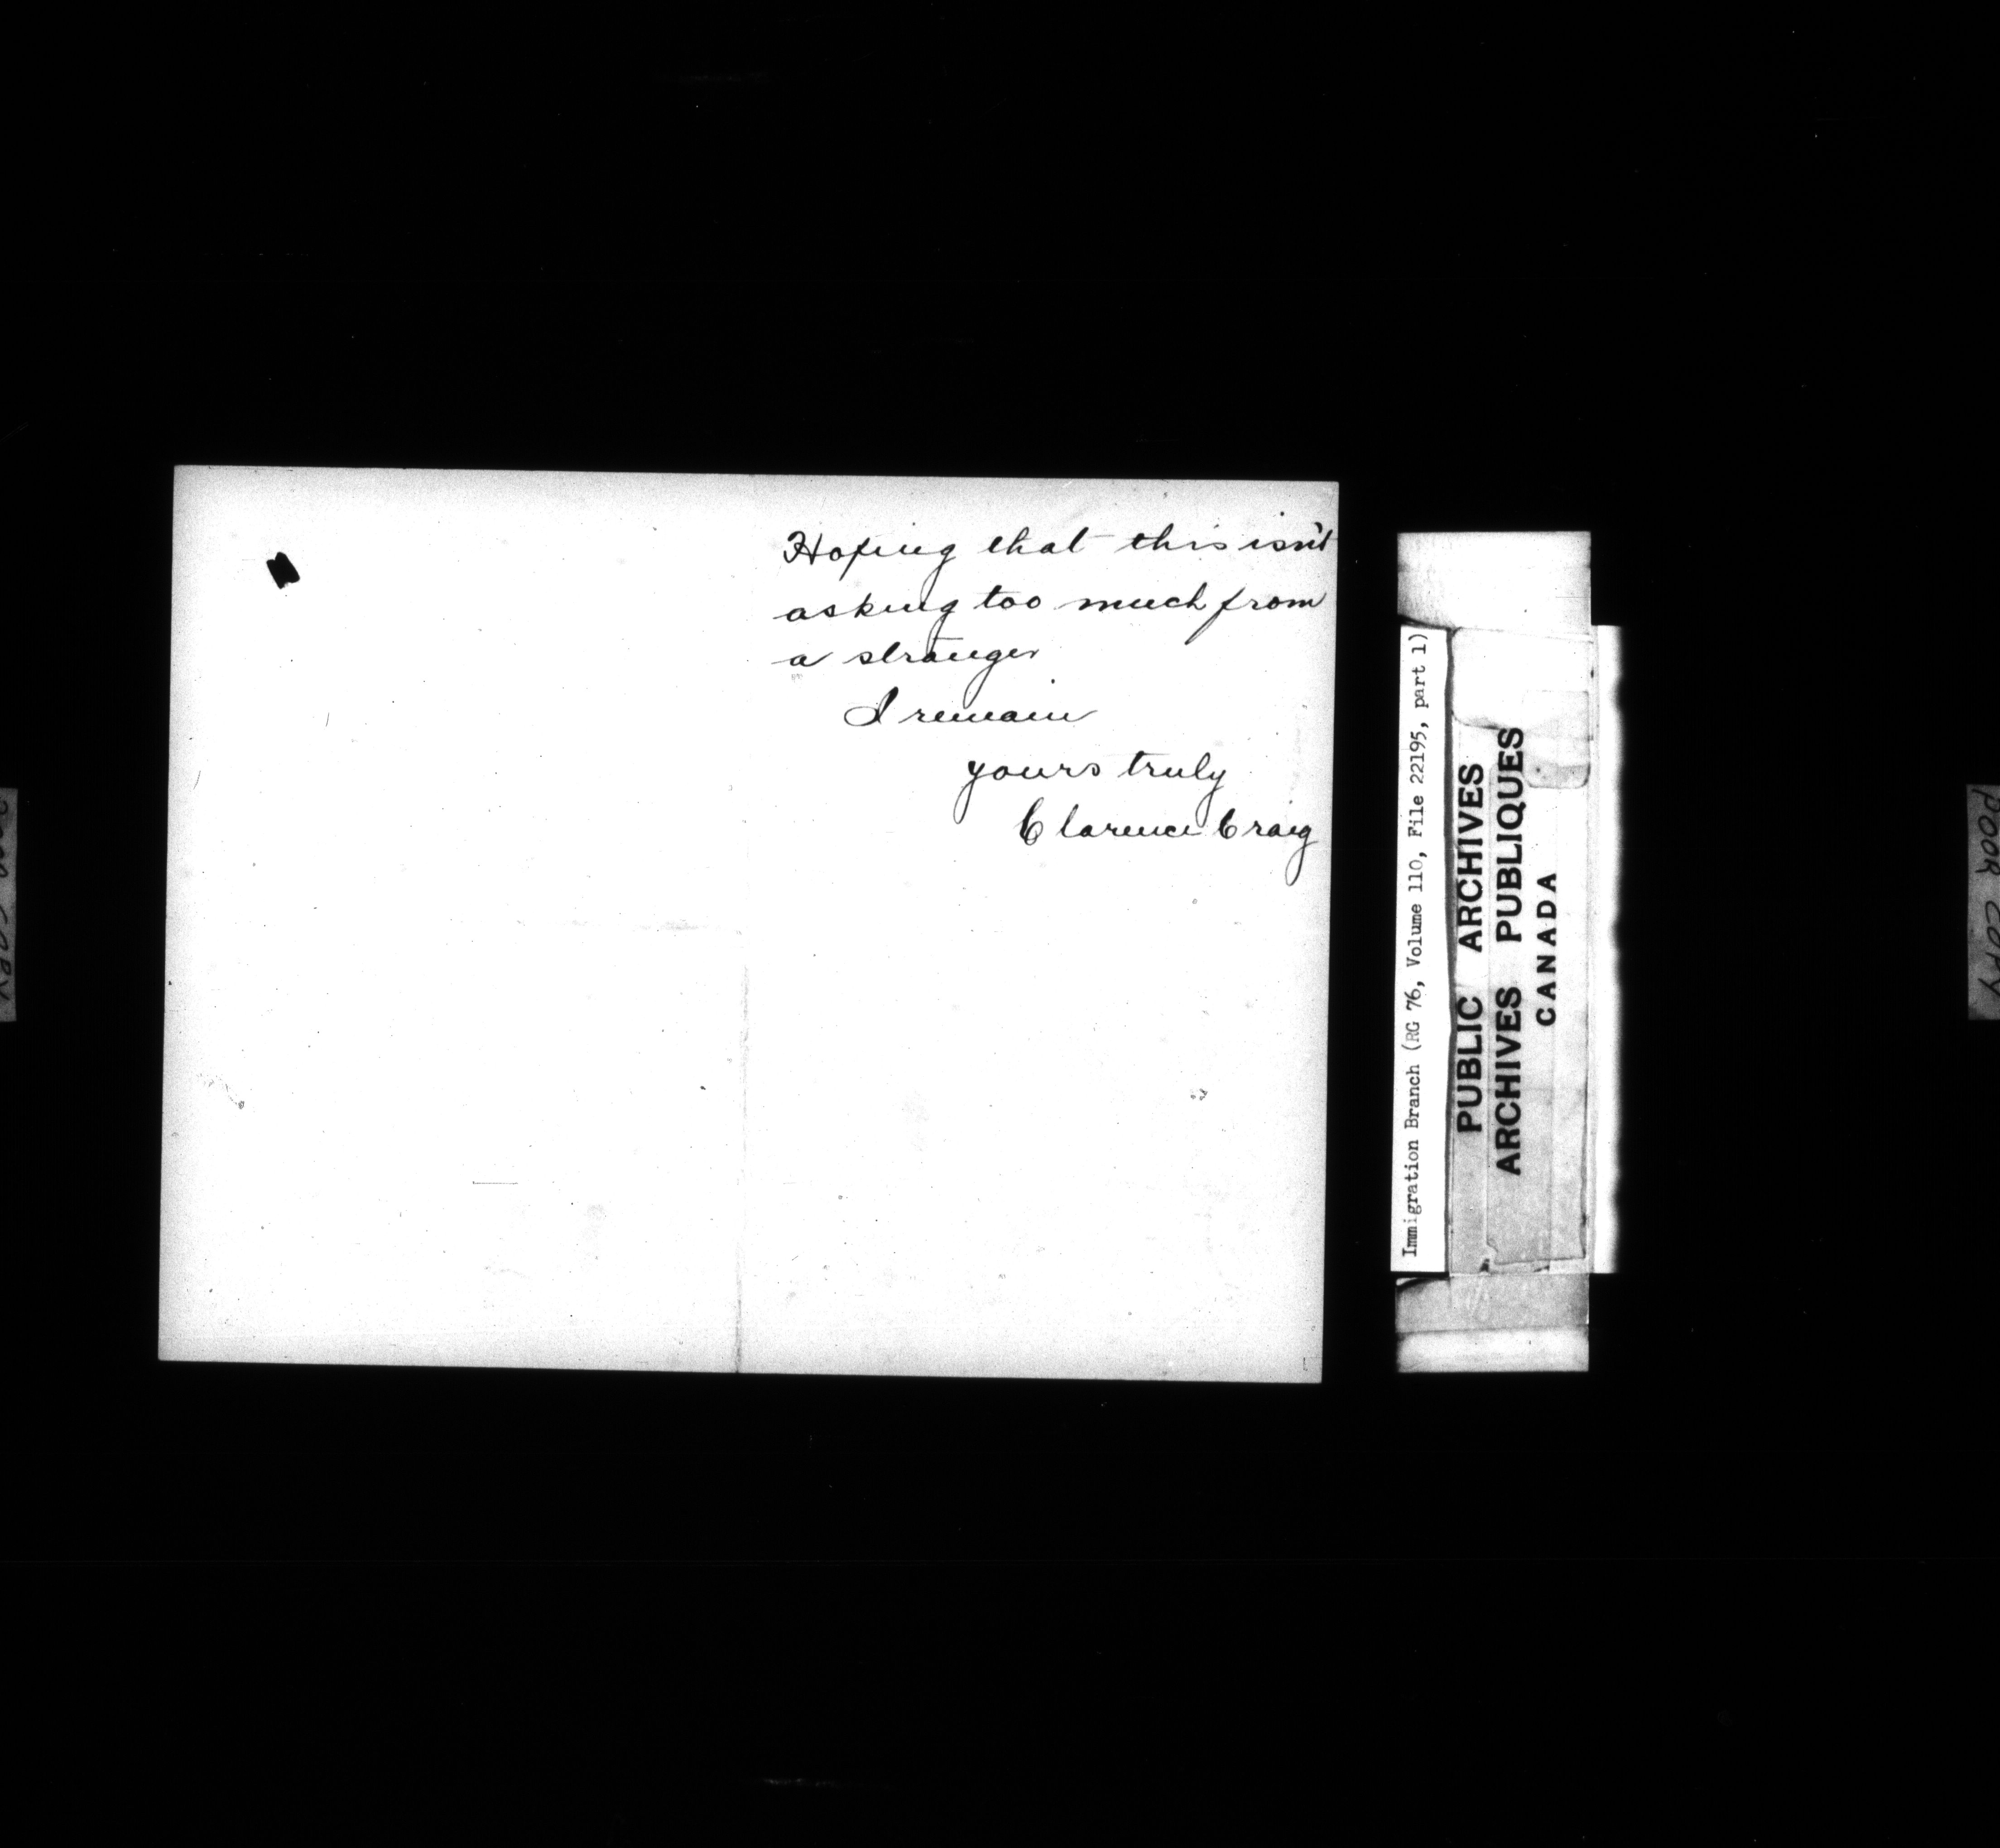 Hoping that this isn't
asking too much from
a stranger
I remain
yours truly
Clarence Craig
Immigration Branch (RG 76, Volume 110, File 22195, part 1)
PUBLIC ARCHIVES
ARCHIVES PUBLIQUES
CANADA
POOR COPY
POOR COPY